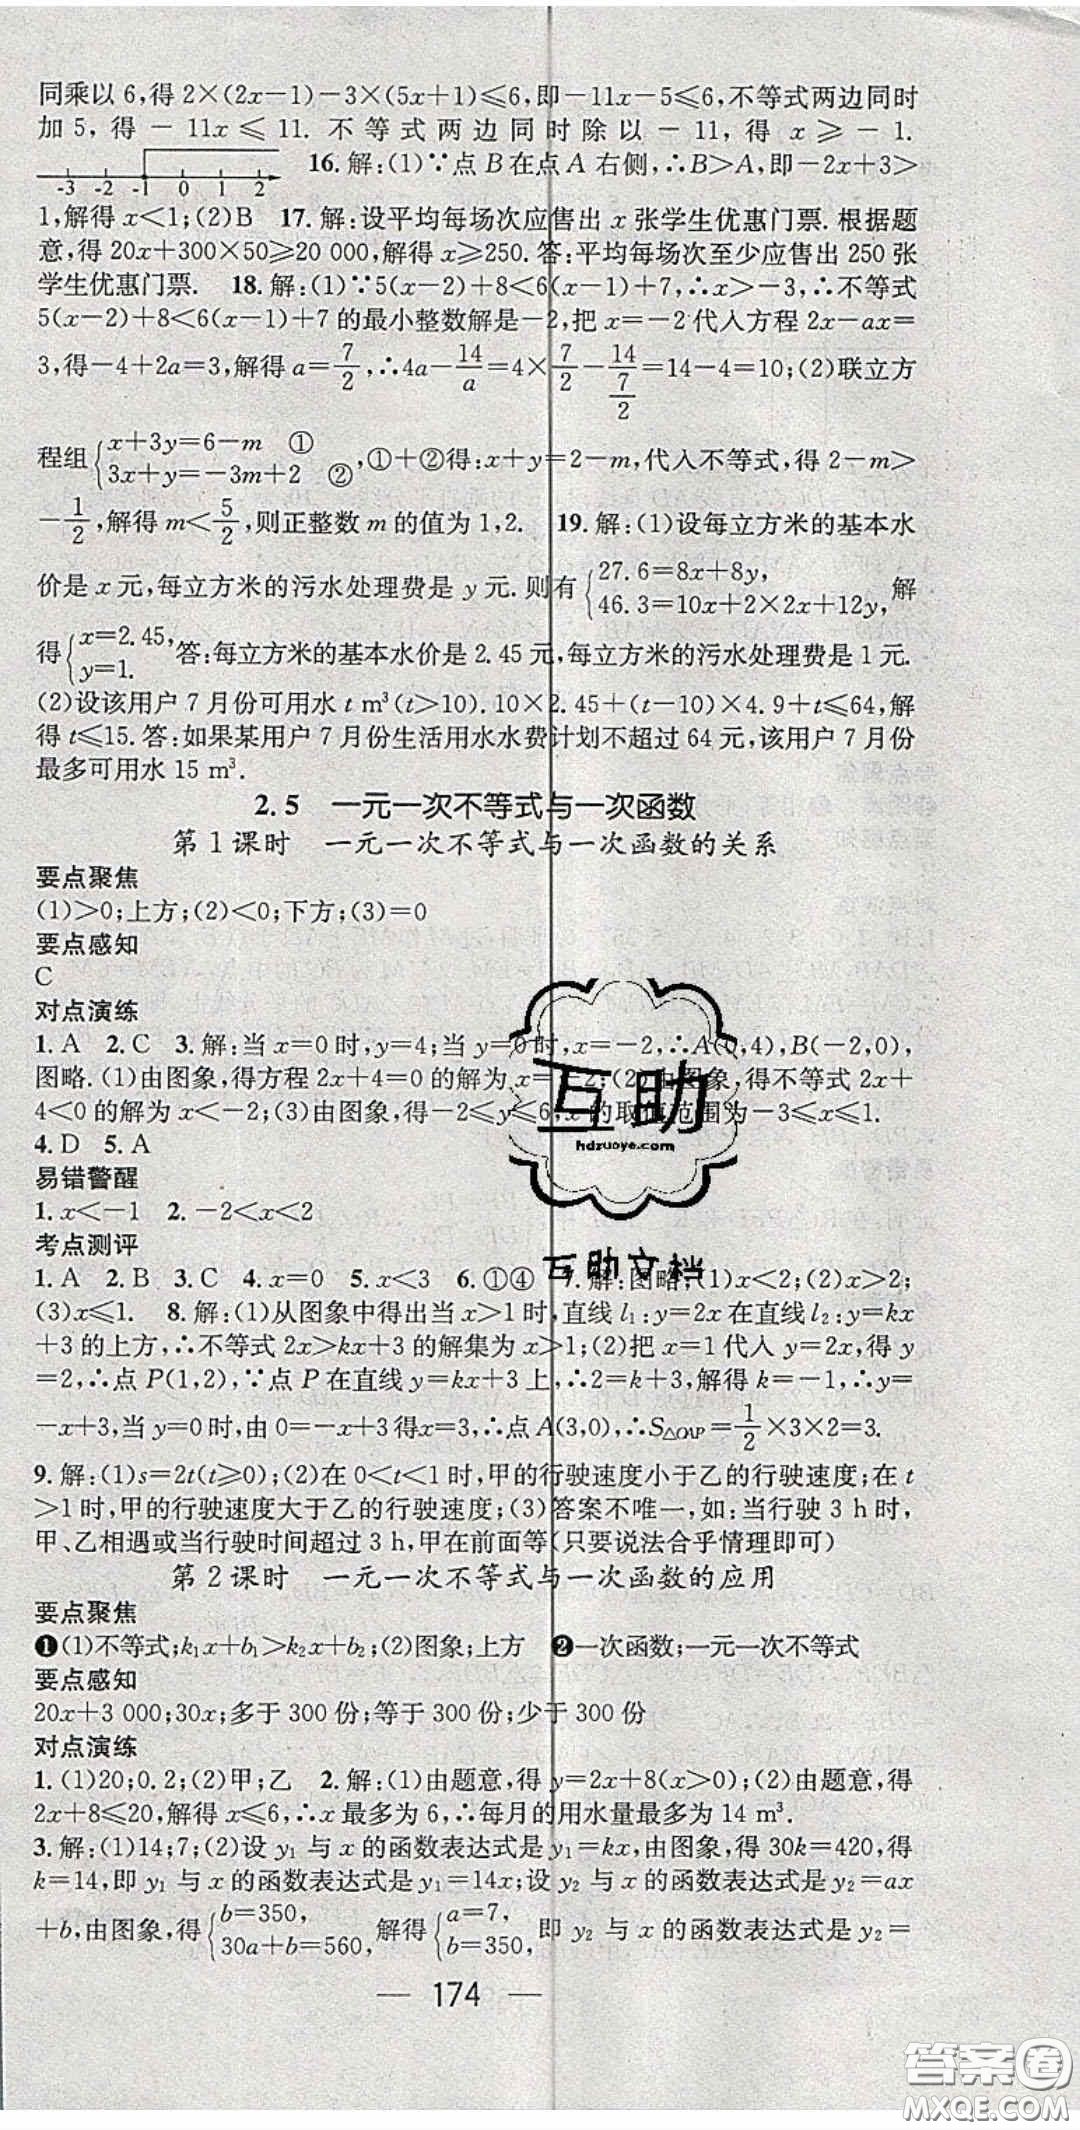 同乘以6,得2×(2x-1)-3×(5x+1)≤6,即-11x-5≤6,不等式两边同时
加5,得-11x≤11.不等式两边同时除以-11,得x≥-1.
-3 -2 -1 0 1 2 16.解:(1)∵点B在点A右侧,∴B>A,即-2x+3>
1,解得x<1;(2)B 17.解:设平均每场次应售出x张学生优惠门票.根据题
意,得20x+300×50≥20 000,解得x≥250.答:平均每场次至少应售出250张
学生优惠门票. 18.解:(1)∵5(x-2)+8<6(x-1)+7,∴x>-3,∴不等式
5(x-2)+8<6(x-1)+7的最小整数解是-2,把x=-2代入方程2x-ax=
3,得-4+2a=3,解得a=7/2,∴4a-14/a=4×7/2-14/(7/2)=14-4=10;(2)联立方
程组{x+3y=6-m ① 3x+y=-3m+2 ②,①+②得:x+y=2-m,代入不等式,得2-m>
-1/2,解得m<5/2,则正整数m的值为1,2. 19.解:(1)设每立方米的基本水
价是x元,每立方米的污水处理费是y元.则有{27.6=8x+8y, 46.3=10x+2×2x+12y,解
得{x=2.45, y=1. 答:每立方米的基本水价是2.45元,每立方米的污水处理费是1元.
(2)设该用户7月份可用水t m³(t>10).10×2.45+(t-10)×4.9+t≤64,解
得t≤15.答:如果某用户7月份生活用水水费计划不超过64元,该用户7月份
最多可用水15 m³.
2.5 一元一次不等式与一次函数
第1课时 一元一次不等式与一次函数的关系
要点聚焦
(1)>0;上方;(2)<0;下方;(3)=0
要点感知
C
对点演练
1.A 2.C 3.解:当x=0时,y=4;当y=0时,x=-2,∴A(0,4),B(-2,0),
图略.(1)由图象,得方程2x+4=0的解为x=-2;(2)由图象,得不等式2x+
4<0的解为x<-2;(3)由图象,得-2≤y≤6,x的取值范围为-3≤x≤1.
4.D 5.A
易错警醒
1.x<-1 2.-2<x<2
考点测评
1.A 2.B 3.C 4.x=0 5.x<3 6.①④ 7.解:图略;(1)x<2;(2)x>2;
(3)x≤1. 8.解:(1)从图象中得出当x>1时,直线l₁:y=2x在直线l₂:y=kx
+3的上方,∴不等式2x>kx+3的解集为x>1;(2)把x=1代入y=2x,得y
=2,∴点P(1,2),∵点P在直线y=kx+3上,∴2=k+3,解得k=-1,∴y=
-x+3,当y=0时,由0=-x+3得x=3,∴点A(3,0),∴S△OAP=1/2×3×2=3.
9.解:(1)s=2t(t≥0);(2)在0<t<1时,甲的行驶速度小于乙的行驶速度;在t
>1时,甲的行驶速度大于乙的行驶速度;(3)答案不唯一,如:当行驶3 h时,
甲、乙相遇或当行驶时间超过3 h,甲在前面等(只要说法合乎情理即可)
第2课时 一元一次不等式与一次函数的应用
要点聚焦
❶(1)不等式;k₁x+b₁>k₂x+b₂;(2)图象;上方 ❷一次函数;一元一次不等式
要点感知
20x+3 000;30x;多于300份;等于300份;少于300份
对点演练
1.(1)20;0.2;(2)甲;乙 2.解:(1)由题意,得y=2x+8(x>0);(2)由题意,得
2x+8≤20,解得x≤6,∴x最多为6,∴每月的用水量最多为14 m³.
3.解:(1)14;7;(2)设y₁与x的函数表达式是y₁=kx,由图象,得30k=420,得
k=14,即y₁与x的函数表达式是y₁=14x;设y₂与x的函数表达式是y₂=ax
+b,由图象,得{b=350, 30a+b=560, 解得{a=7, b=350, 即y₂与x的函数表达式是y₂=
— 174 —
互助
hdzuoye.com
互助文档
答案圈
MXQE.COM